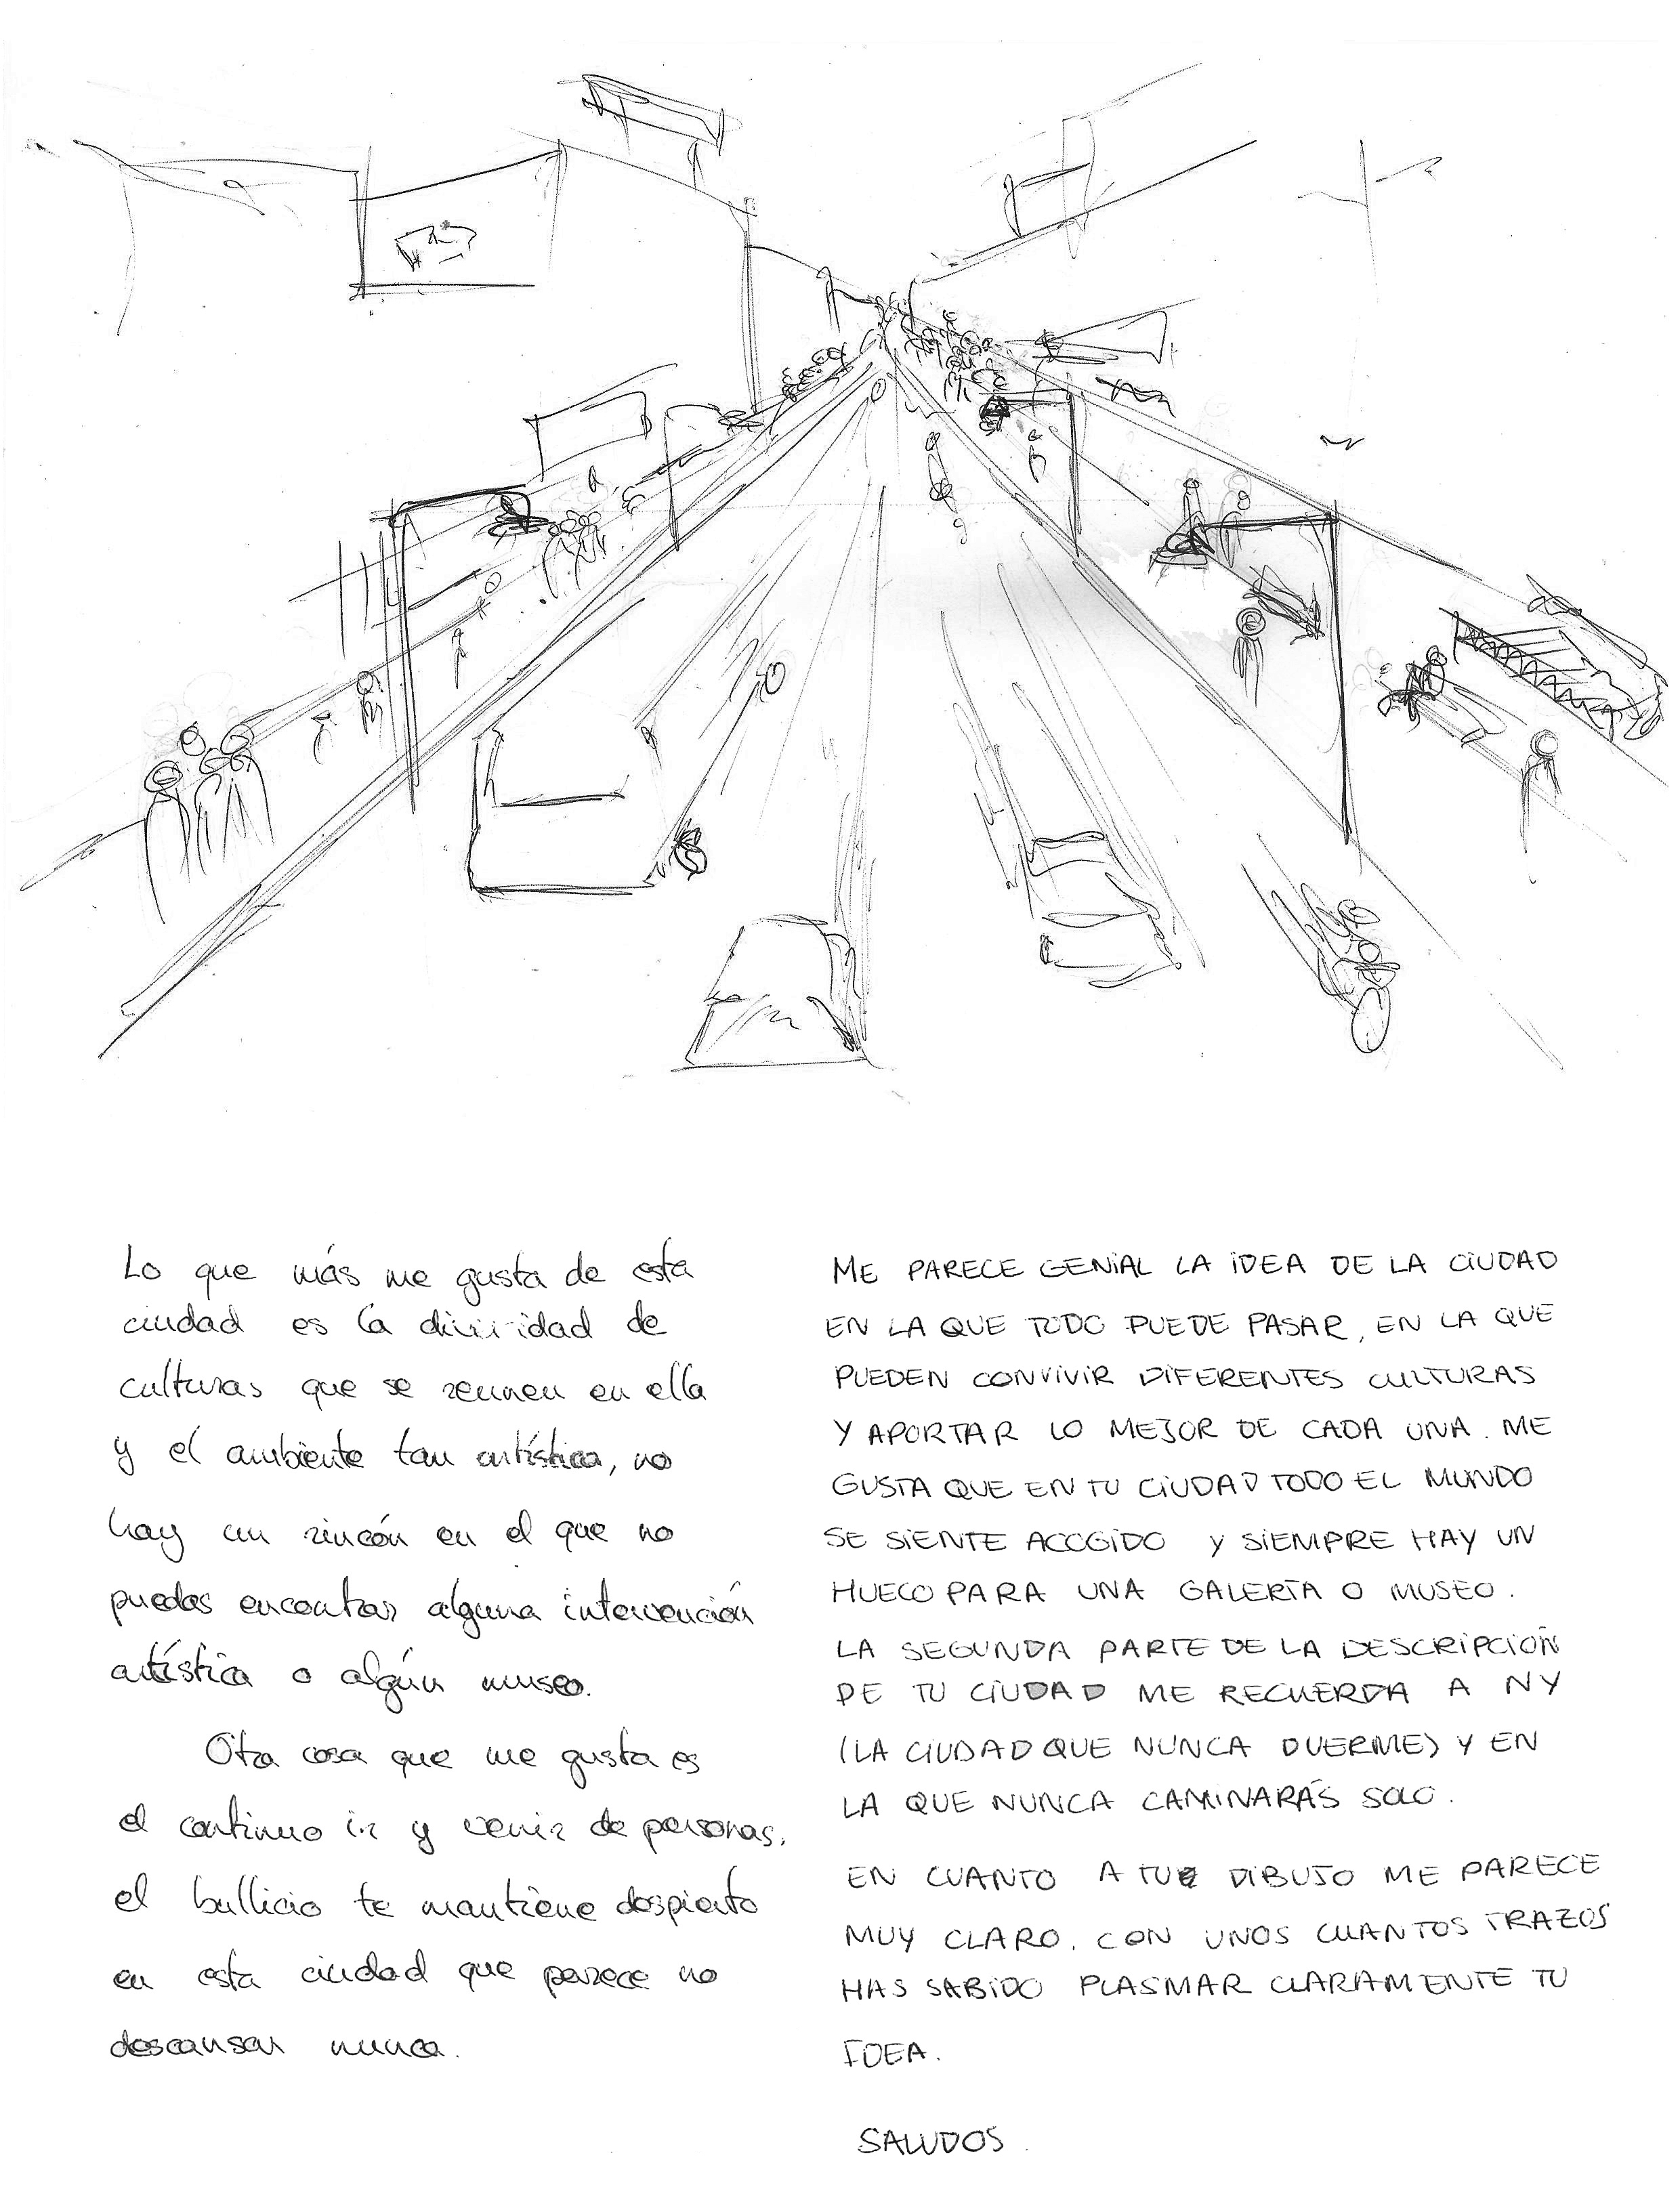 Lo que más me gusta de esta
ciudad es la diversidad de
culturas que se reunen en ella
y el ambiente tan artístico, no
hay un rincón en el que no
puedas encontrar alguna intervención
artística o algún museo.
Otra cosa que me gusta es
el continuo ir y venir de personas,
el bullicio te mantiene despierto
en esta ciudad que parece no
descansar nunca.
ME PARECE GENIAL LA IDEA DE LA CIUDAD
EN LA QUE TODO PUEDE PASAR, EN LA QUE
PUEDEN CONVIVIR DIFERENTES CULTURAS
Y APORTAR LO MEJOR DE CADA UNA. ME
GUSTA QUE EN TU CIUDAD TODO EL MUNDO
SE SIENTE ACOGIDO Y SIEMPRE HAY UN
HUECO PARA UNA GALERÍA O MUSEO.
LA SEGUNDA PARTE DE LA DESCRIPCIÓN
DE TU CIUDAD ME RECUERDA A NY
(LA CIUDAD QUE NUNCA DUERME) Y EN
LA QUE NUNCA CAMINARÁS SOLO.
EN CUANTO A TU DIBUJO ME PARECE
MUY CLARO. CON UNOS CUANTOS TRAZOS
HAS SABIDO PLASMAR CLARAMENTE TU
IDEA.
SALUDOS